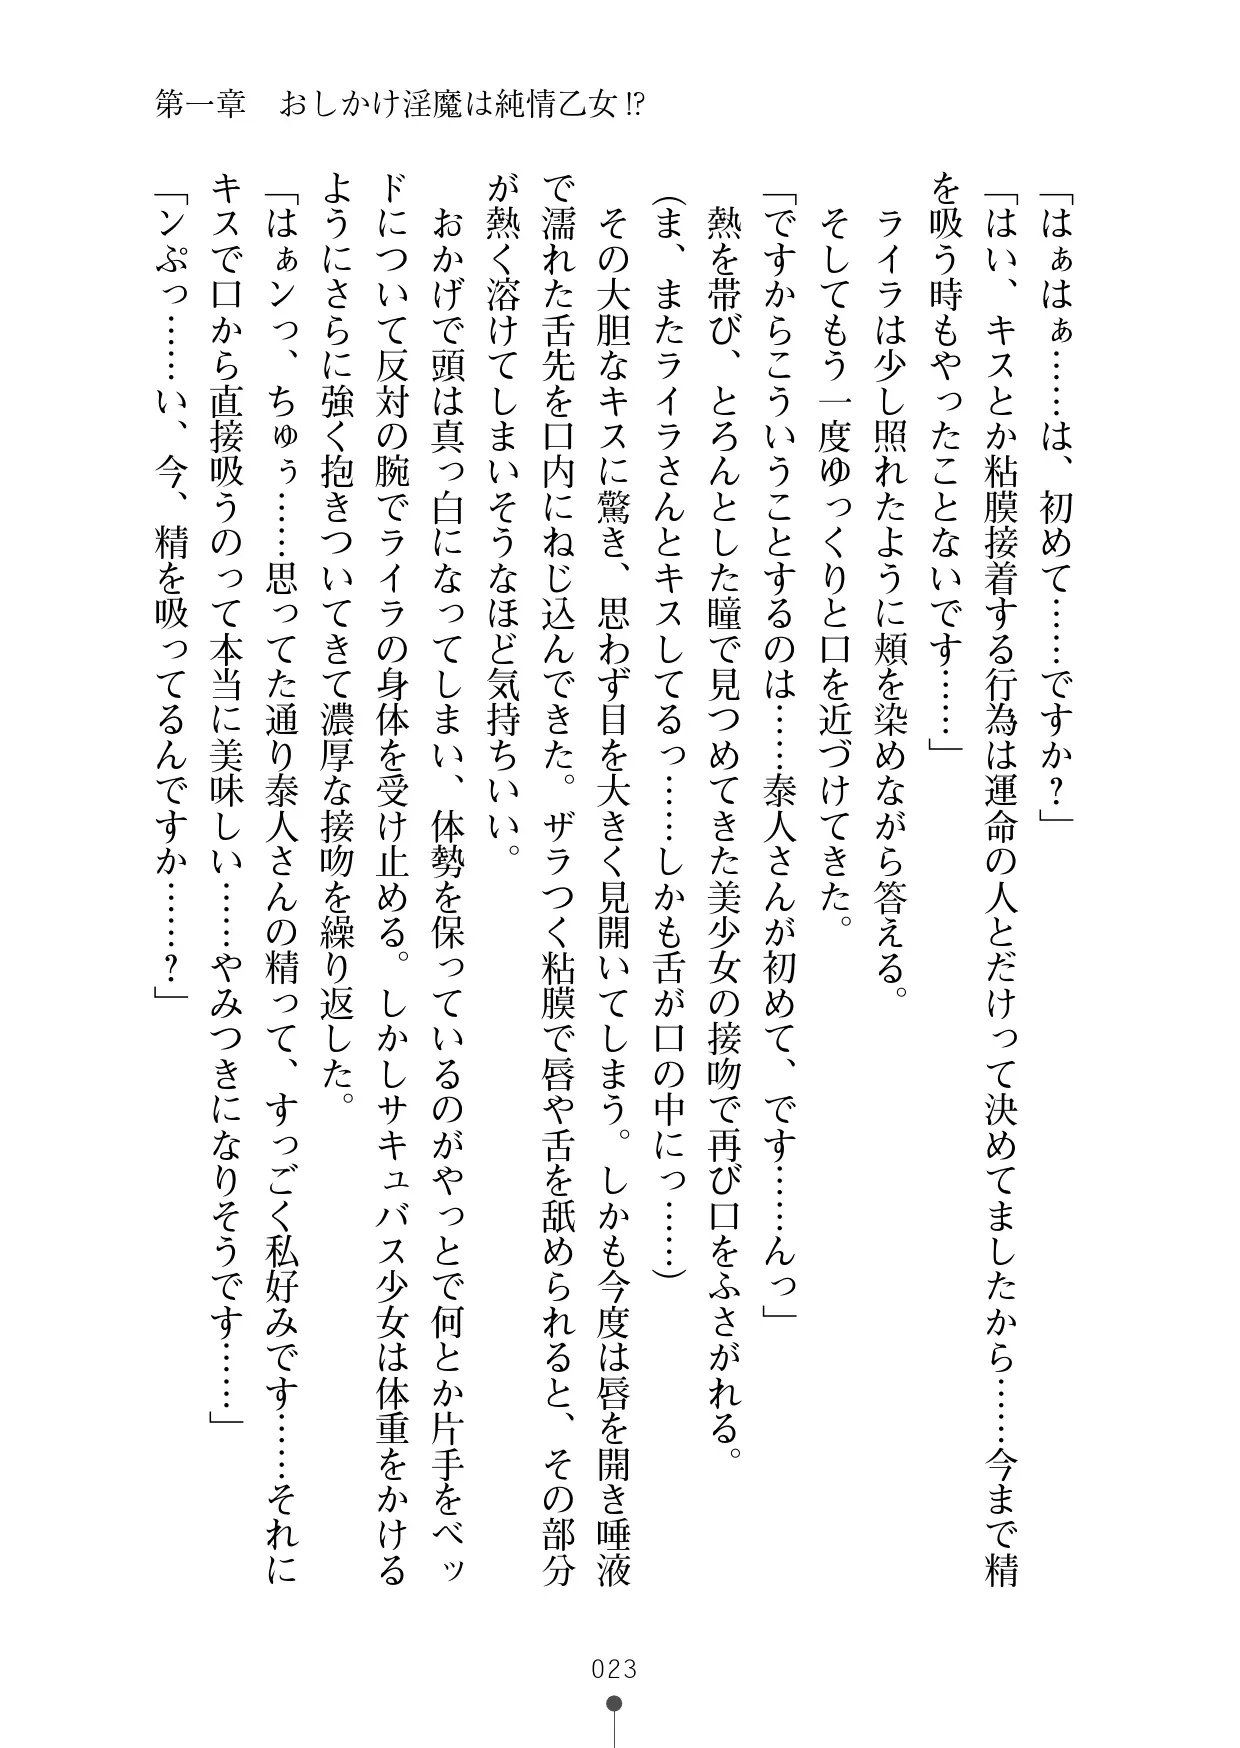 第一章　おしかけ淫魔は純情乙女!?
「はぁはぁ……は、初めて……ですか？」
「はい、キスとか粘膜接着する行為は運命の人とだけって決めてましたから……今まで精
を吸う時もやったことないです……」
　ライラは少し照れたように頬を染めながら答える。
　そしてもう一度ゆっくりと口を近づけてきた。
「ですからこういうことするのは……泰人さんが初めて、です……んっ」
　熱を帯び、とろんとした瞳で見つめてきた美少女の接吻で再び口をふさがれる。
（ま、またライラさんとキスしてるっ……しかも舌が口の中にっ……）
　その大胆なキスに驚き、思わず目を大きく見開いてしまう。しかも今度は唇を開き唾液
で濡れた舌先を口内にねじ込んできた。ザラつく粘膜で唇や舌を舐められると、その部分
が熱く溶けてしまいそうなほど気持ちいい。
　おかげで頭は真っ白になってしまい、体勢を保っているのがやっとで何とか片手をベッ
ドについて反対の腕でライラの身体を受け止める。しかしサキュバス少女は体重をかける
ようにさらに強く抱きついてきて濃厚な接吻を繰り返した。
「はぁンっ、ちゅぅ……思ってた通り泰人さんの精って、すっごく私好みです……それに
キスで口から直接吸うのって本当に美味しい……やみつきになりそうです……」
「ンぷっ……い、今、精を吸ってるんですか……？」
023